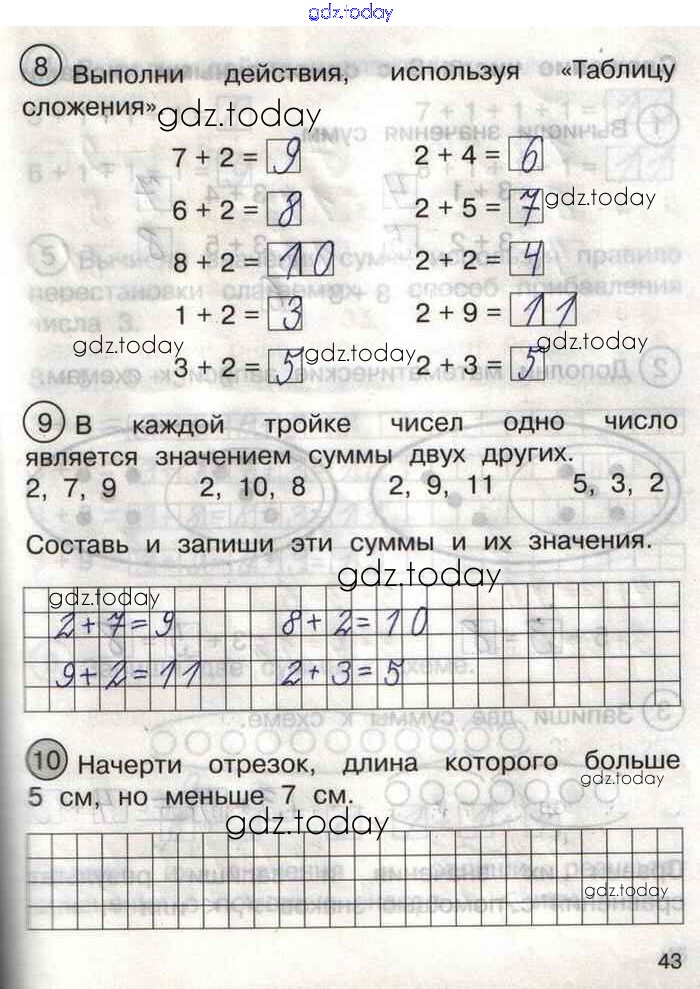 gdz.today
8 Выполни действия, используя «Таблицу
сложения».
gdz.today
7 + 2 = 9 2 + 4 = 6
6 + 2 = 8 2 + 5 = 7
gdz.today
8 + 2 = 10 2 + 2 = 4
1 + 2 = 3 2 + 9 = 11
gdz.today gdz.today gdz.today
3 + 2 = 5 2 + 3 = 5
9 В каждой тройке чисел одно число
является значением суммы двух других.
2, 7, 9 2, 10, 8 2, 9, 11 5, 3, 2
Составь и запиши эти суммы и их значения.
gdz.today gdz.today
2+7=9 8+2=10
9+2=11 2+3=5
10 Начерти отрезок, длина которого больше
gdz.today
5 см, но меньше 7 см.
gdz.today
gdz.today
43